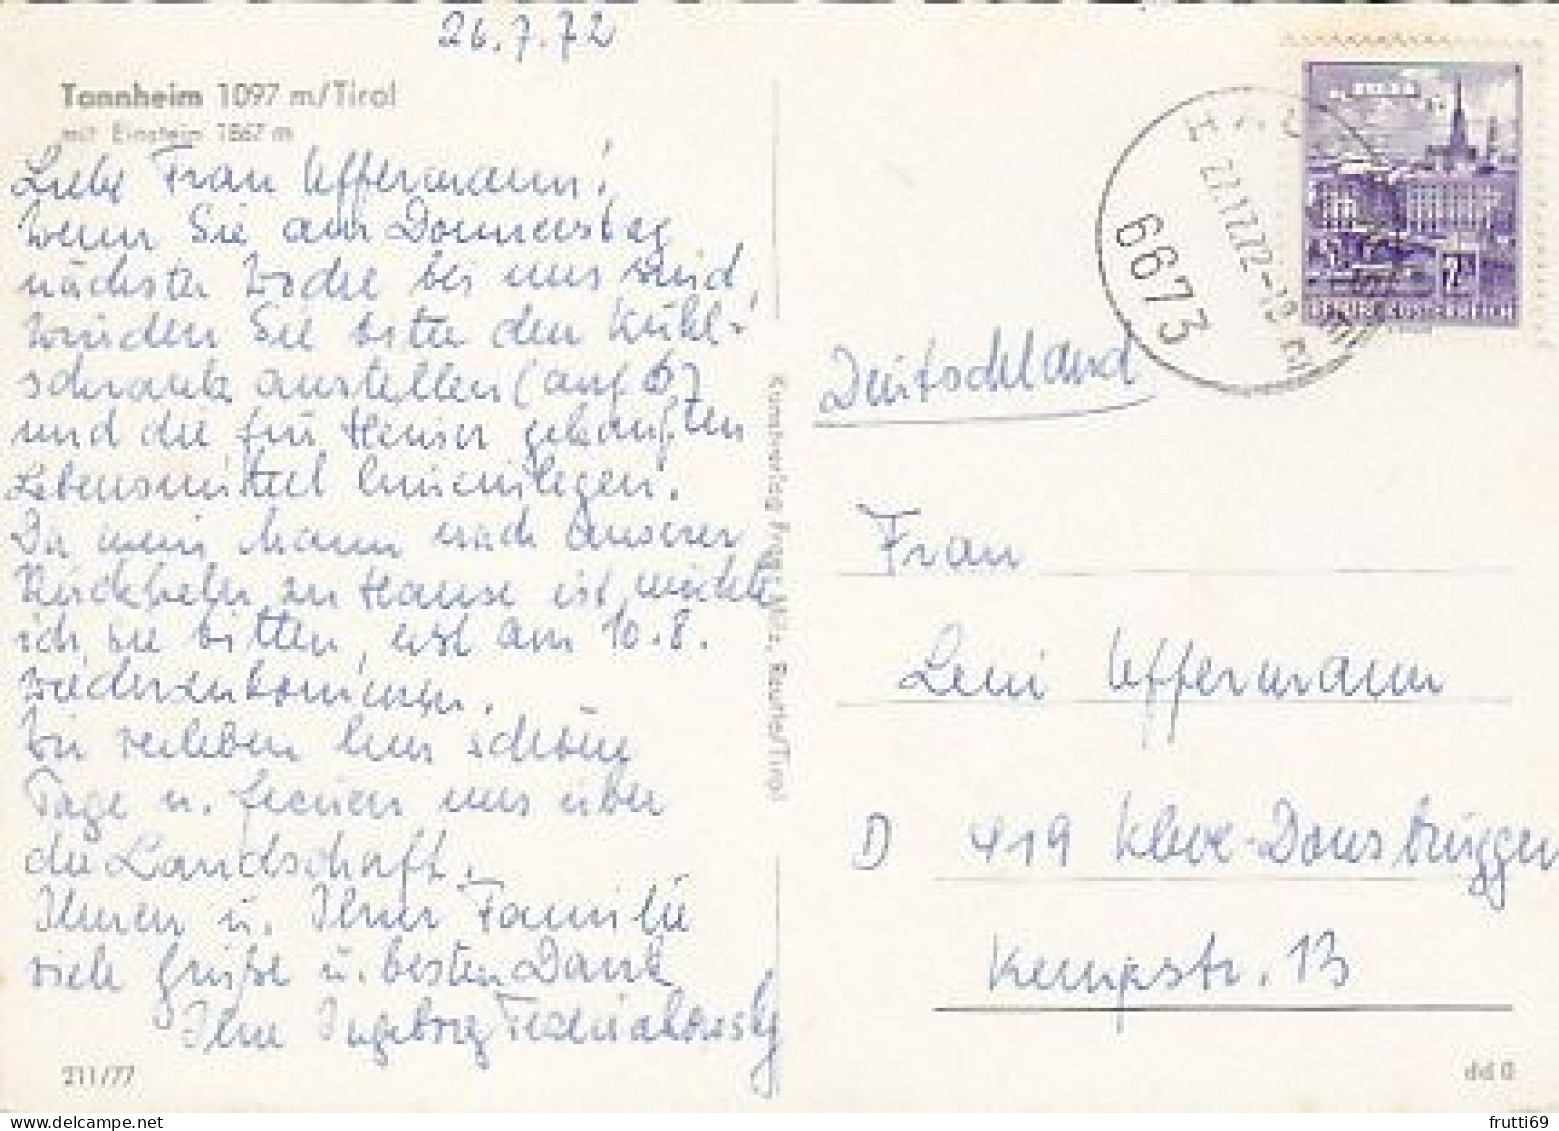 26.7.72
Tannheim 1097 m/Tirol
mit Einstein 1867 m
Liebe Frau Uffermann!
Wenn Sie am Donnerstag
nächster Woche bei uns sind,
würden Sie bitte den Kühl-
schrank anstellen (auf 6)
und die für Heiner gekauften
Lebensmittel hineinlegen.
Da mein Mann nach unserer
Rückkehr zu Hause ist, möchte
ich Sie bitten, erst am 10.8.
wiederzukommen.
Wir verleben hier schöne
Tage u. freuen uns über
die Landschaft.
Ihnen u. Ihrer Familie
viele Grüße u. besten Dank
Ihre Ingeborg
211/77
Kunstverlag Franz Milz, Reutte/Tirol
6673
27.7.72-19
REPUBLIK ÖSTERREICH
Deutschland
Frau
Leni Uffermann
D 419 Kleve-Donsbrüggen
Kempstr. 13
dd G
frutti69